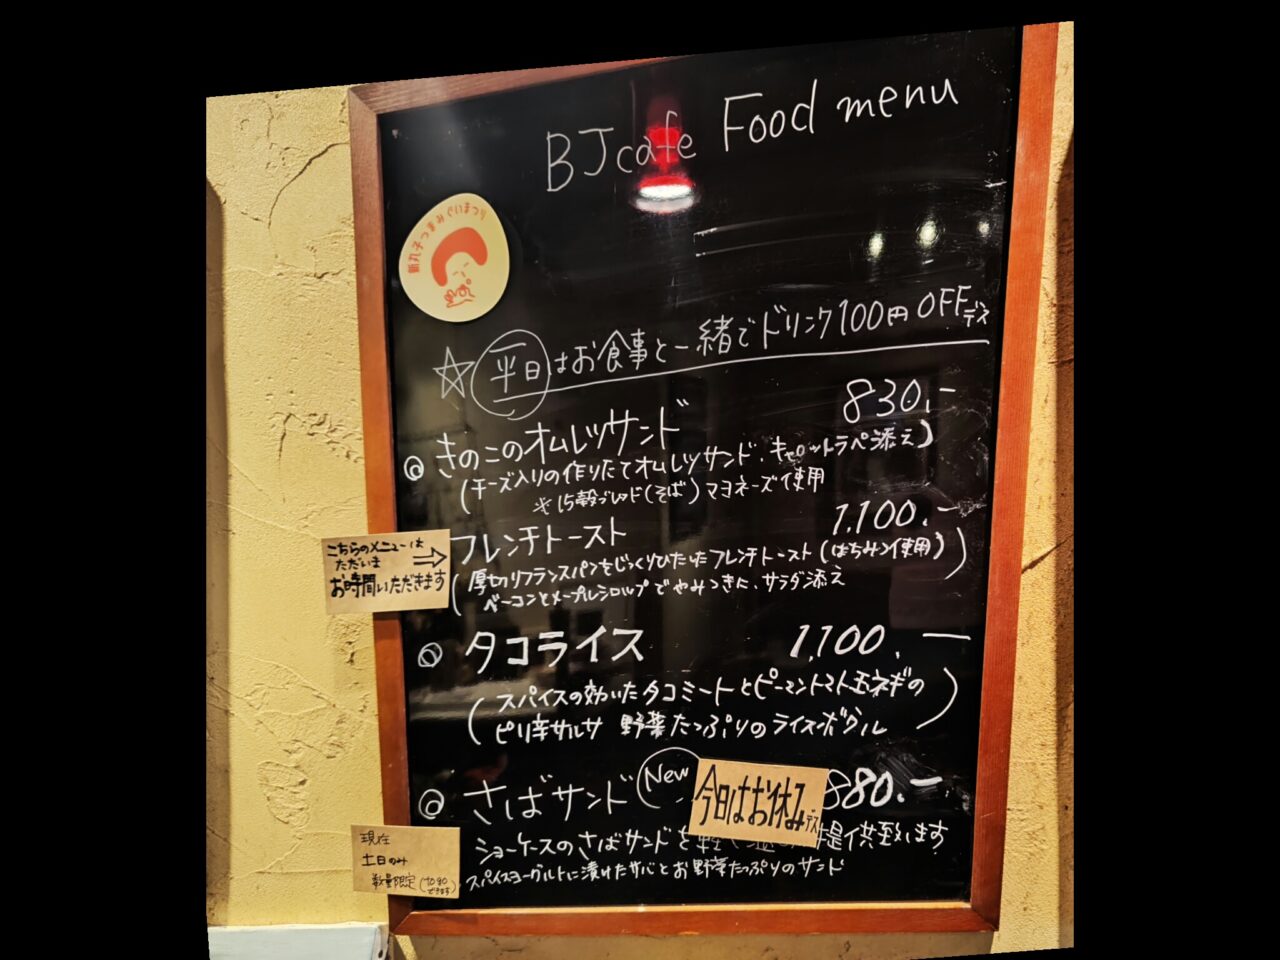 BJcafe Food menu
新丸子つまみぐいまつり
☆平日はお食事と一緒でドリンク100円OFFデス
◎きのこのオムレツサンド 830.-
(チーズ入りの作りたてオムレツサンド、キャロットラペ添え)
※15穀ブレッド(そば)マヨネーズ使用
こちらのメニューは
ただいま
お時間いただきます
フレンチトースト 1,100.-
(厚切りフランスパンをじっくりひたしたフレンチトースト(はちみつ使用)
ベーコンとメープルシロップでやみつきに、サラダ添え)
◎タコライス 1,100.-
(スパイスの効いたタコミートとピーマントマト玉ネギの
ピリ辛サルサ 野菜たっぷりのライスボウル)
◎さばサンド New 880.-
今日はお休みデス
ショーケースのさばサンドを軽く 提供致します
スパイスヨーグルトに漬けたサバとお野菜たっぷりのサンド
現在
土日のみ
数量限定